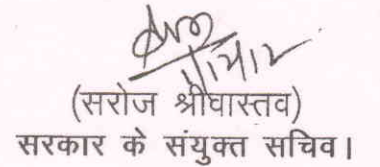 (सरोज श्रीवास्तव)
सरकार के संयुक्त सचिव।